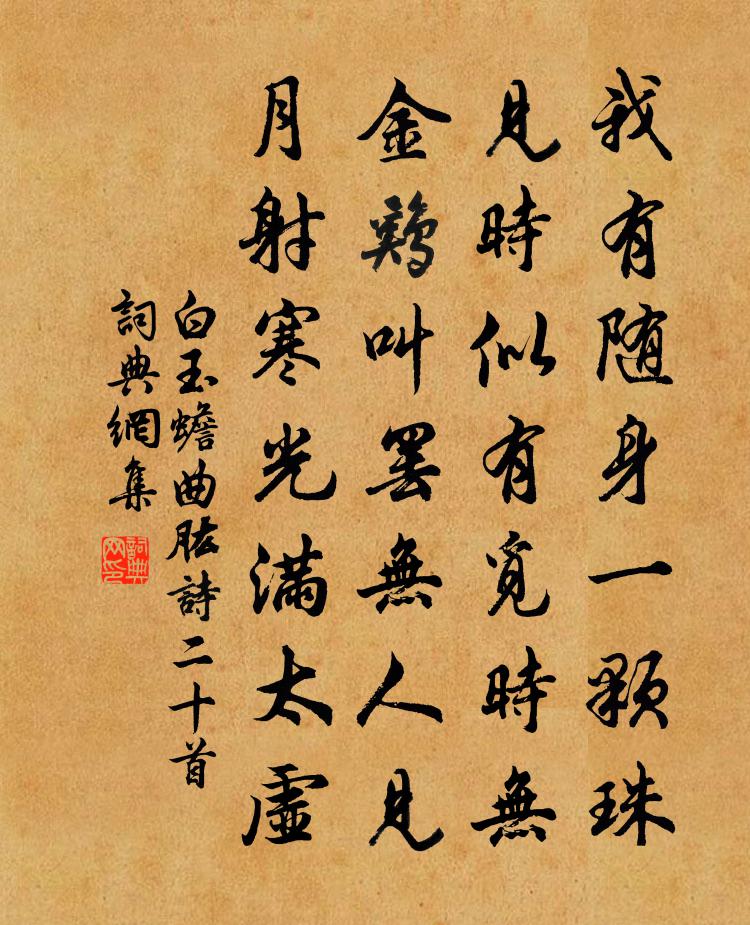 我有随身一顆珠
見時似有覓時無
金鷄叫罷無人見
月射寒光滿太虛
白玉蟾曲肱詩二十首
詞典網集
詞典
网印